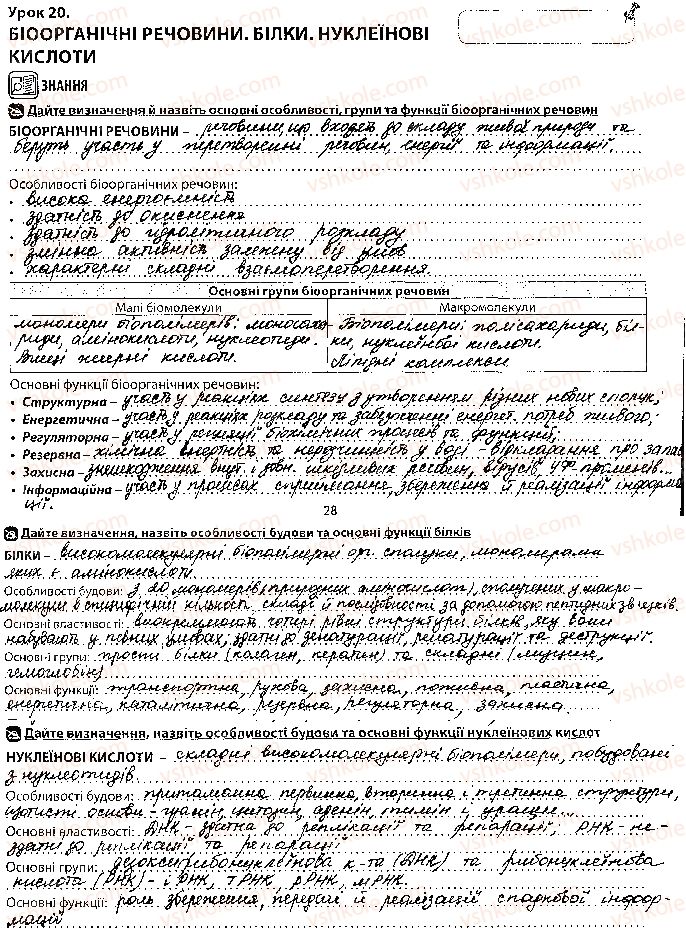 Урок 20.
БІООРГАНІЧНІ РЕЧОВИНИ. БІЛКИ. НУКЛЕЇНОВІ
КИСЛОТИ
ЗНАННЯ
Дайте визначення й назвіть основні особливості, групи та функції біоорганічних речовин
БІООРГАНІЧНІ РЕЧОВИНИ – речовини, що входять до складу живої природи та
беруть участь у перетворенні речовин, енергії та інформації.
Особливості біоорганічних речовин:
• висока енергоємність
• здатність до окиснення
• здатність до гідролітичного розкладу
• змінна активність залежну від умов
• характерні складні взаємоперетворення.
Основні групи біоорганічних речовин
Малі біомолекули Макромолекули
мономери біополімерів: моносаха- Біополімери: полісахариди, біл-
риди, амінокислоти, нуклеотиди. ки, нуклеїнові кислоти.
Вищі жирні кислоти. Ліпідні комплекси
Основні функції біоорганічних речовин:
• Структурна – участь у реакціях синтезу з утворенням різних нових сполук;
• Енергетична – участь у реакціях розкладу та забезпеченні енергет. потреб живого;
• Регуляторна – участь у регуляції біохімічних процесів та функцій;
• Резервна – хімічна інертність та нерозчинність у воді - відкладання про запас
• Захисна – знешкодження внут. і зовн. шкідливих речовин, вірусів, УФ променів...
• Інформаційна – участь у процесах сприймання, збереження й реалізації інформа-
ції.
28
Дайте визначення, назвіть особливості будови та основні функції білків
БІЛКИ – високомолекулярні біополімерні орг. сполуки, мономерами
яких є амінокислоти
Особливості будови: з 20 мономерів (природних амінокислот), сполучених у макро-
молекули в специфічній кількості, складі й послідовності за допомогою пептидних зв'язків.
Основні властивості: виокремлюють чотири рівні структури білків, яку вони
набувають у певних умовах, здатні до денатурації, ренатурації та деструкції.
Основні групи: прості білки (колаген, кератин) та складні (муцин,
гемоглобін)
Основні функції: транспортна, рухова, захисна, поживна, пластична,
енергетична, каталітична, резервна, регуляторна, захисна
Дайте визначення, назвіть особливості будови та основні функції нуклеїнових кислот
НУКЛЕЇНОВІ КИСЛОТИ – складні високомолекулярні біополімери, побудовані
з нуклеотидів
Особливості будови: притаманна первинна, вторинна і третинна структури,
азотисті основи - гуанін, цитозин, аденін, тимін і урацил...
Основні властивості: ДНК - здатна до реплікації та репарації, РНК - не-
здатні до реплікації та репарації
Основні групи: дезоксирибонуклеїнова к-та (ДНК) та рибонуклеїнова
кислота (РНК) - іРНК, тРНК, рРНК, мРНК.
Основні функції: роль збереження, передачі й реалізації спадкової інфор-
мації
vshkole.com